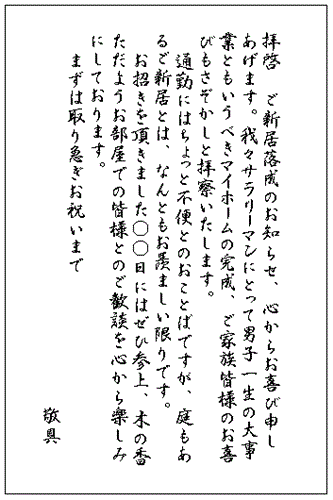 拝啓　ご新居落成のお知らせ、心からお喜び申し
あげます。我々サラリーマンにとって男子一生の大事
業ともいうべきマイホームの完成、ご家族皆様のお喜
びもさぞかしと拝察いたします。
　通勤にはちょっと不便とのおことばですが、庭もあ
るご新居とは、なんともお羨ましい限りです。
　お招きを頂きました〇〇日にはぜひ参上、木の香
ただようお部屋での皆様とのご歓談を心から楽しみ
にしております。
　まずは取り急ぎお祝いまで
敬具